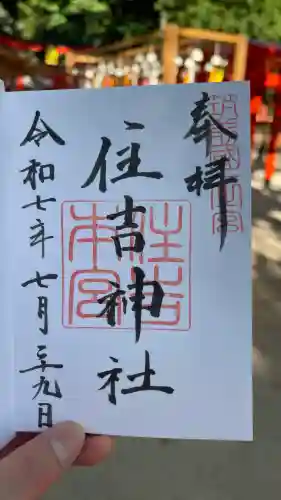 奉拝
住吉神社
住吉
本宮
令和七年七月二十九日